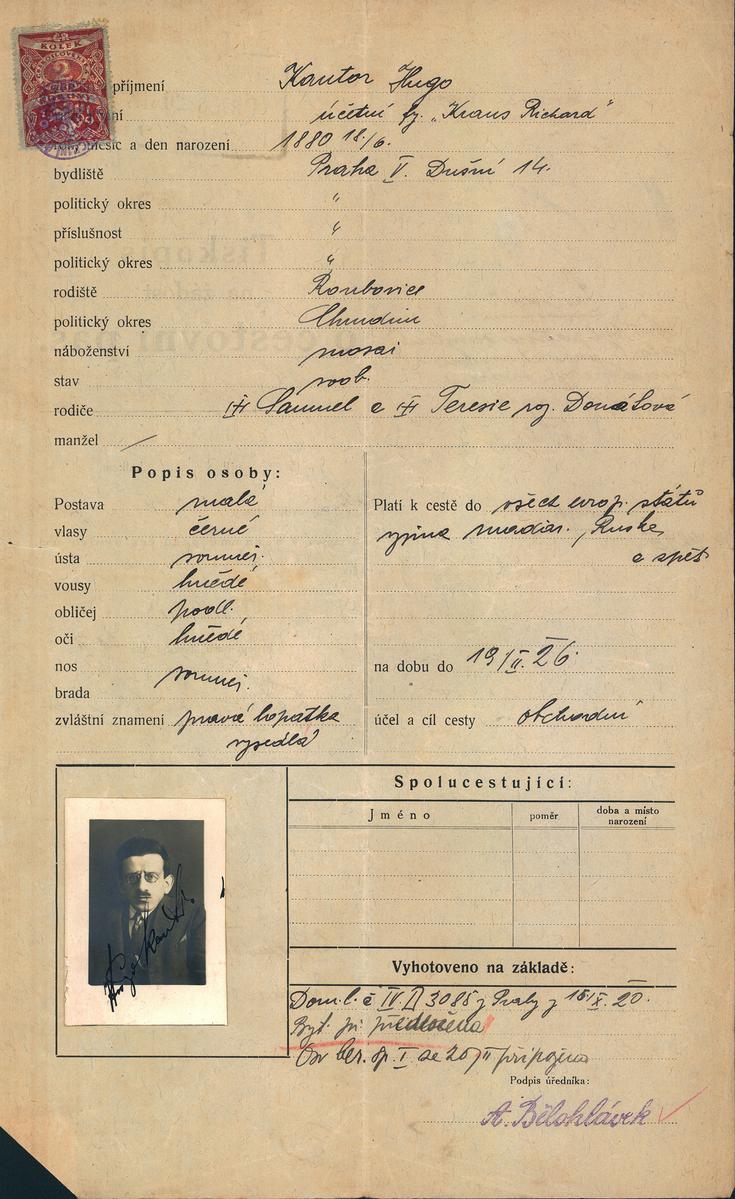 KOLEK
2
příjmení Kantor Hugo
účetní fy. „Kraus Richard"
měsíc a den narození 1880 18/6.
bydliště Praha V. Dušní 14.
politický okres "
příslušnost "
politický okres "
rodiště Roubovice
politický okres Chrudim
náboženství mosai
stav svob.
rodiče Samuel a Teresie roz. Donátová
manžel
Popis osoby:
Postava malá
vlasy černé
ústa souměr.
vousy hnědé
obličej podl.
oči hnědé
nos souměr.
brada
zvláštní znamení pravá lopatka
vysedlá
Platí k cestě do všech evrop. států
vyjma maďar., Ruska
a zpět
na dobu do 19/II. 26.
účel a cíl cesty obchodní
Spolucestující:
Jméno poměr doba a místo narození
Hugo Kantor
Vyhotoveno na základě:
Dom. l. č IV 3085 z Prahy z 15/X. 20.
předložena
připojeno
Podpis úředníka:
A. Bělohlávek